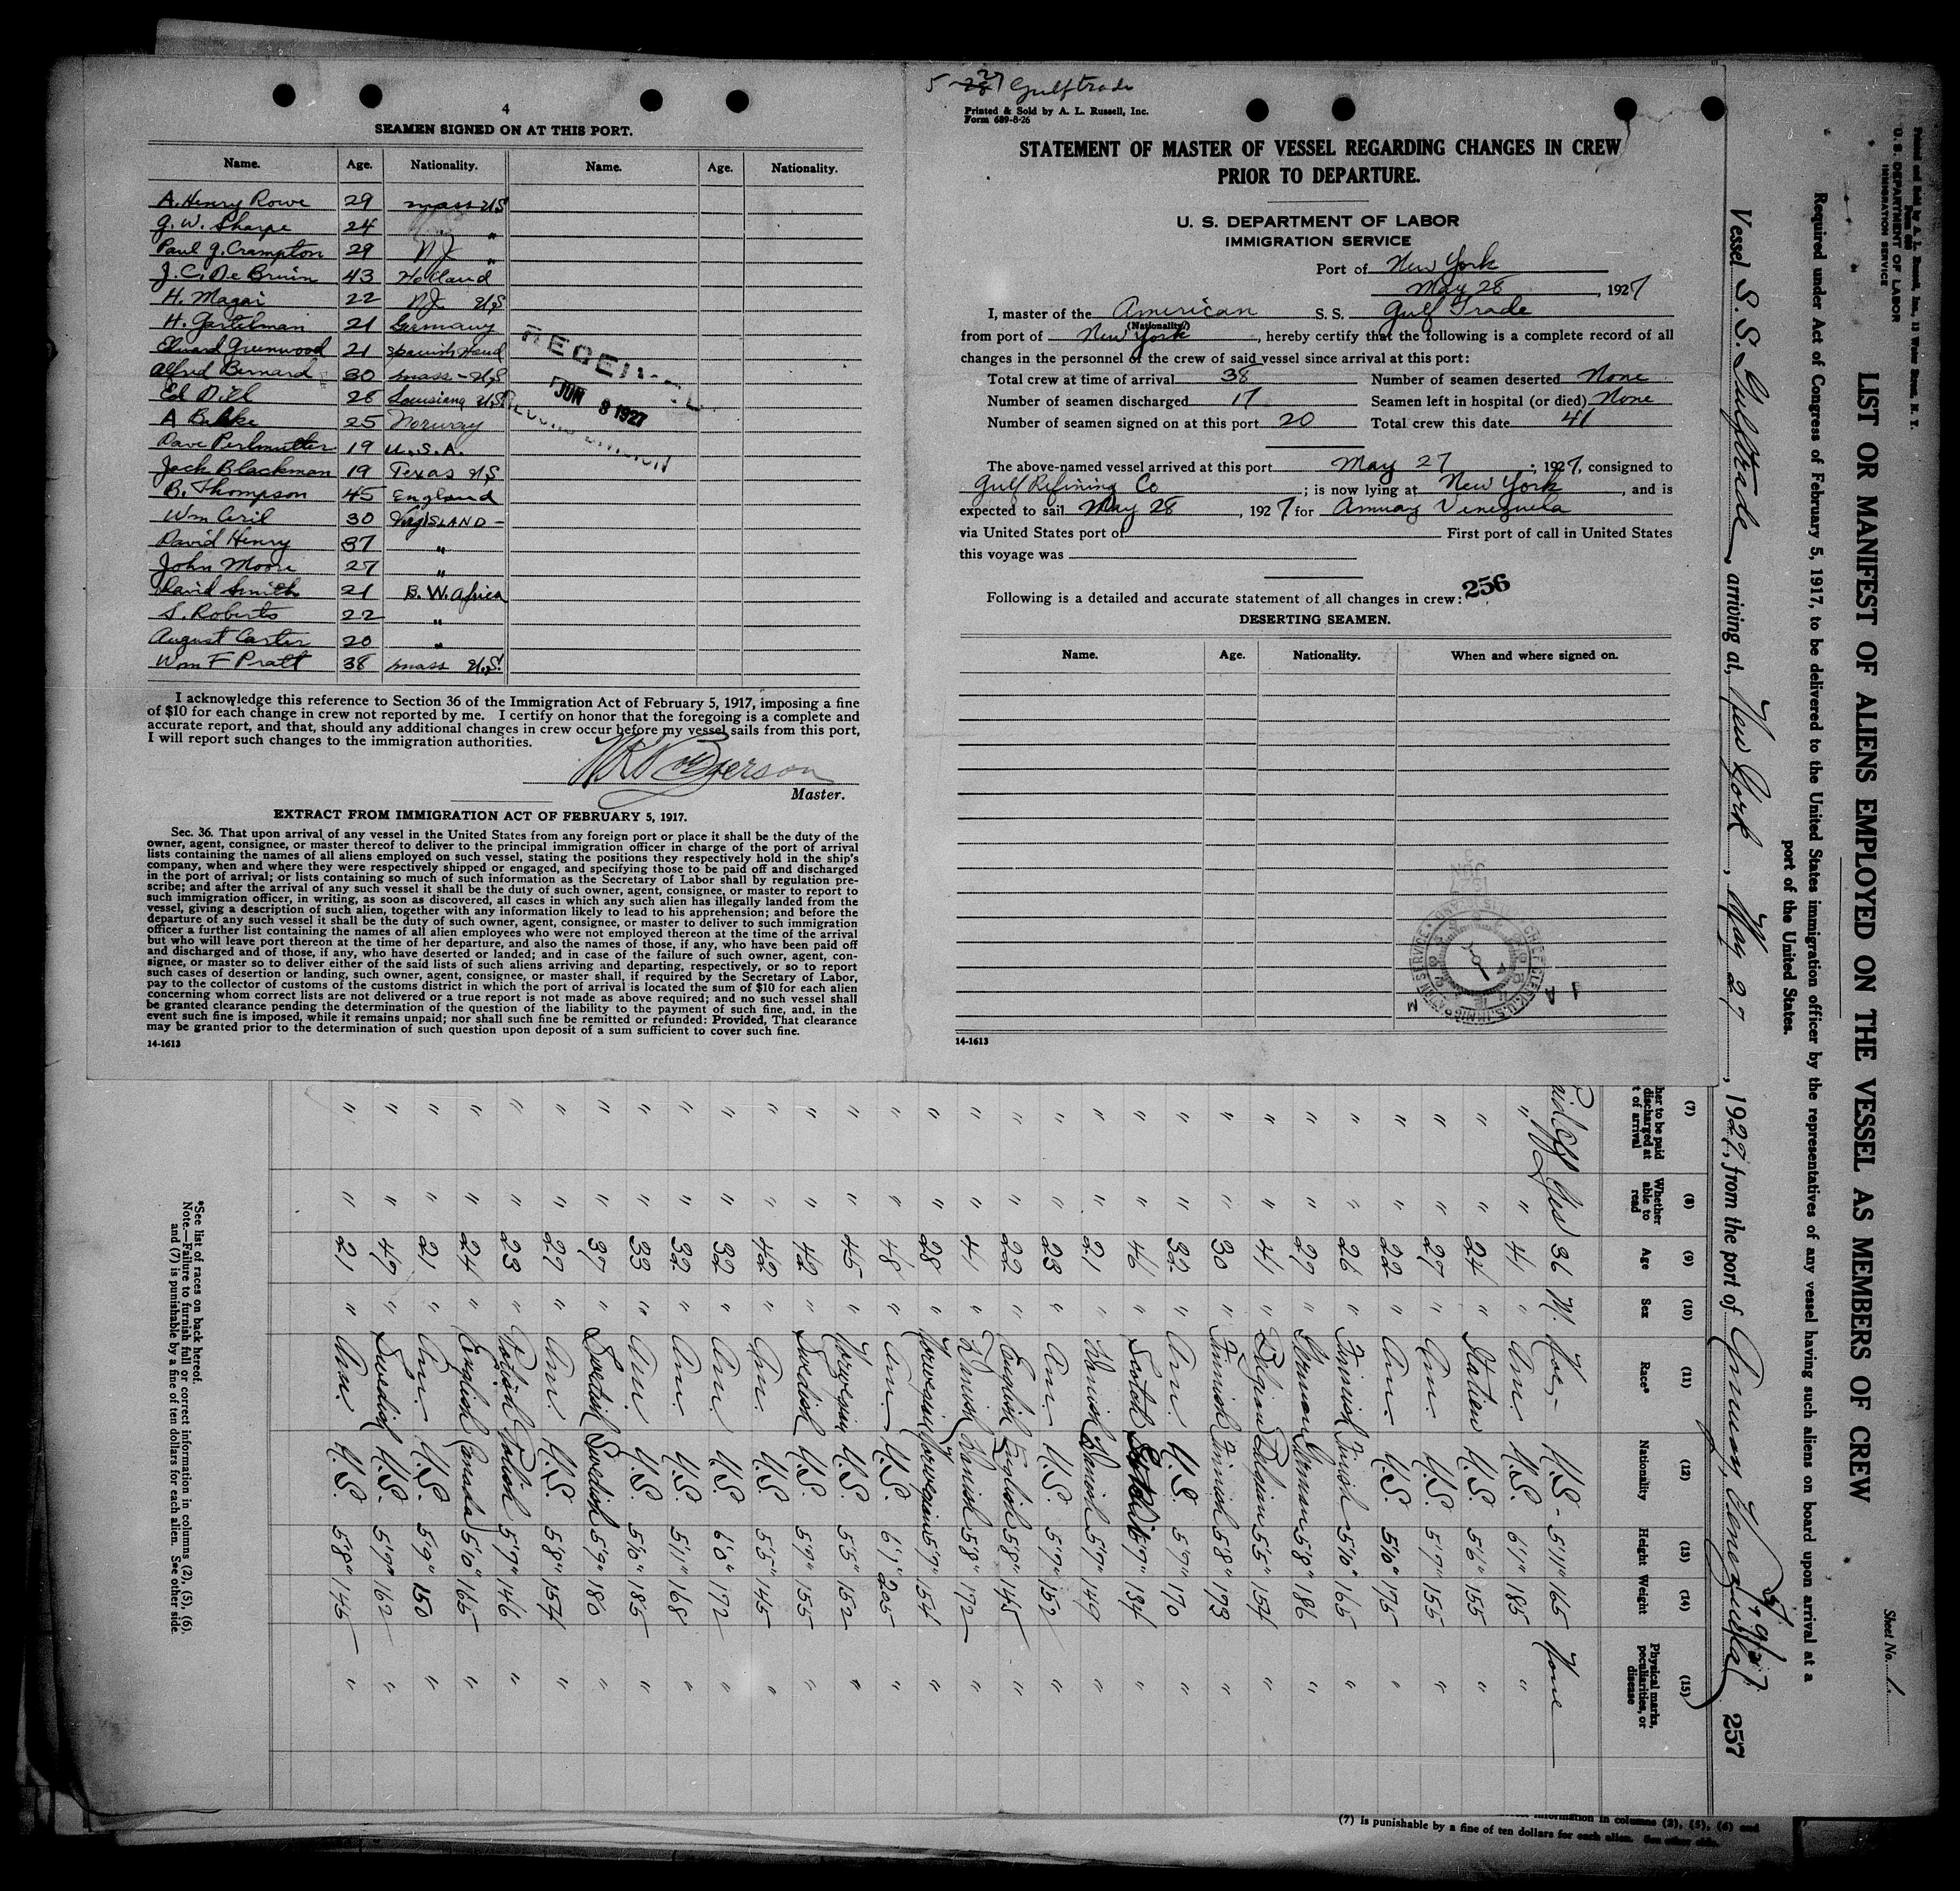 4
SEAMEN SIGNED ON AT THIS PORT.
Name. Age. Nationality. Name. Age. Nationality.
A. Henry Rowe 29 mass US
G. W. Sharpe 24 " "
Paul J. Crampton 29 N J "
J. C. De Bruin 43 Holland
H. Magai 22 N.J. U,S
H. Gartelman 21 Germany
Edward Greenwood 21 Spanish Hond
Alfred Bernard 30 mass - U,S
Ed Diel 28 Louisiana U,S
A Behke 25 Norway
Dave Perlmutter 19 U.S.A.
Jack Blackman 19 Texas U,S
B. Thompson 45 England
Wm Ceril 30 Virg ISLAND -
David Henry 37 "
John Moore 27 "
David Smith 21 B. W. Africa
S. Roberts 22 "
August Carter 20 "
Wm F Pratt 38 mass U.S.
RECEIVED
JUN 8 1927
RECORD DIVISION
I acknowledge this reference to Section 36 of the Immigration Act of February 5, 1917, imposing a fine
of $10 for each change in crew not reported by me. I certify on honor that the foregoing is a complete and
accurate report, and that, should any additional changes in crew occur before my vessel sails from this port,
I will report such changes to the immigration authorities.
Master.
EXTRACT FROM IMMIGRATION ACT OF FEBRUARY 5, 1917.
Sec. 36. That upon arrival of any vessel in the United States from any foreign port or place it shall be the duty of the
owner, agent, consignee, or master thereof to deliver to the principal immigration officer in charge of the port of arrival
lists containing the names of all aliens employed on such vessel, stating the positions they respectively hold in the ship's
company, when and where they were respectively shipped or engaged, and specifying those to be paid off and discharged
in the port of arrival; or lists containing so much of such information as the Secretary of Labor shall by regulation pre-
scribe; and after the arrival of any such vessel it shall be the duty of such owner, agent, consignee, or master to report to
such immigration officer, in writing, as soon as discovered, all cases in which any such alien has illegally landed from the
vessel, giving a description of such alien, together with any information likely to lead to his apprehension; and before the
departure of any such vessel it shall be the duty of such owner, agent, consignee, or master to deliver to such immigration
officer a further list containing the names of all alien employees who were not employed thereon at the time of the arrival
but who will leave port thereon at the time of her departure, and also the names of those, if any, who have been paid off
and discharged and of those, if any, who have deserted or landed; and in case of the failure of such owner, agent, con-
signee, or master so to deliver either of the said lists of such aliens arriving and departing, respectively, or so to report
such cases of desertion or landing, such owner, agent, consignee, or master shall, if required by the Secretary of Labor,
pay to the collector of customs of the customs district in which the port of arrival is located the sum of $10 for each alien
concerning whom correct lists are not delivered or a true report is not made as above required; and no such vessel shall
be granted clearance pending the determination of the question of the liability to the payment of such fine, and, in the
event such fine is imposed, while it remains unpaid; nor shall such fine be remitted or refunded: Provided, That clearance
may be granted prior to the determination of such question upon deposit of a sum sufficient to cover such fine.
14-1613
5- 27 Gulftrade
Printed & Sold by A. L. Russell, Inc.
Form 689-8-26
STATEMENT OF MASTER OF VESSEL REGARDING CHANGES IN CREW
PRIOR TO DEPARTURE.
U. S. DEPARTMENT OF LABOR
IMMIGRATION SERVICE
Port of New York
May 28, 1927
I, master of the American S. S. Gulf Trade
(Nationality)
from port of New York, hereby certify that the following is a complete record of all
changes in the personnel of the crew of said vessel since arrival at this port:
Total crew at time of arrival 38 Number of seamen deserted None
Number of seamen discharged 17 Seamen left in hospital (or died) None
Number of seamen signed on at this port 20 Total crew this date 41
The above-named vessel arrived at this port May 27, 1927, consigned to
Gulf Refining Co; is now lying at New York, and is
expected to sail May 28, 1927 for Amuay Venezuela
via United States port of First port of call in United States
this voyage was
Following is a detailed and accurate statement of all changes in crew: 256
DESERTING SEAMEN.
Name. Age. Nationality. When and where signed on.
14-1613
Printed and Sold by A. L. Russell, Inc., 13 Water Street, N. Y.
U. S. DEPARTMENT OF LABOR
IMMIGRATION SERVICE
Sheet No. 1.
LIST OR MANIFEST OF ALIENS EMPLOYED ON THE VESSEL AS MEMBERS OF CREW
Required under Act of Congress of February 5, 1917, to be delivered to the United States immigration officer by the representatives of any vessel having such aliens on board upon arrival at a
port of the United States.
Vessel S.S. Gulftrade, arriving at New York, May 27, 1927, from the port of Amuay, Venezuela 257
(7) (8) (9) (10) (11) (12) (13) (14) (15)
her to be paid discharged at t of arrival Whether able to read Age Sex Race* Nationality Height Weight Physical marks, peculiarities, or disease
Paid Off Yes 36 M. Nor- U.S- 5'11" 165 None
" " 41 " Am. U.S. 6'1" 185 "
" " 24 " Italien U.S. 5'6" 155 "
" " 27 " Am. U.S. 5'7" 155 "
" " 22 " Am. U.S. 5'10" 175 "
" " 26 " Finnish Finish 5'10" 165 "
" " 27 " German German 5'8" 186 "
" " 41 " Belgian Belgium 5'5" 154 "
" " 30 " Finnish Finnish 5'8" 173 "
" " 32 " Am. U.S. 5'7" 170 "
" " 46 " Scotch 5'7" 134 "
" " 21 " Danish Danish 5'7" 149 "
" " 23 " Am. U.S. 5'7" 152 "
" " 22 " English English 5'8" 145 "
" " 41 " Danish Danish 5'8" 172 "
" " 28 " Norwegian Norwegian 5'7" 154 "
" " 48 " Am U.S. 6'1" 205 "
" " 45 " Norwegian U.S. 5'5" 152 "
" " 42 " Swedish U.S. 5'7" 155 "
" " 42 " Am. U.S. 5'5" 145 "
" " 32 " Am U.S. 6'0" 172 "
" " 32 " Am U.S. 5'11" 168 "
" " 33 " Am. U.S. 5'10" 185 "
" " 37 " Swedish Swedish 5'9" 180 "
" " 27 " Am. U.S. 5'8" 154 "
" " 23 " Polish Polish 5'7" 146 "
" " 24 " English Canada 5'10" 165 "
" " 21 " Am. U.S. 5'9" 150 "
" " 49 " Swedish U.S. 5'7" 162 "
" " 21 " Am. U.S. 5'8" 145 "
*See list of races on back hereof.
Note.—Failure to furnish full or correct information in columns (2), (5), (6),
and (7) is punishable by a fine of ten dollars for each alien. See other side.
information in columns (2), (5), (6) and
(7) is punishable by a fine of ten dollars for each alien. See other side.